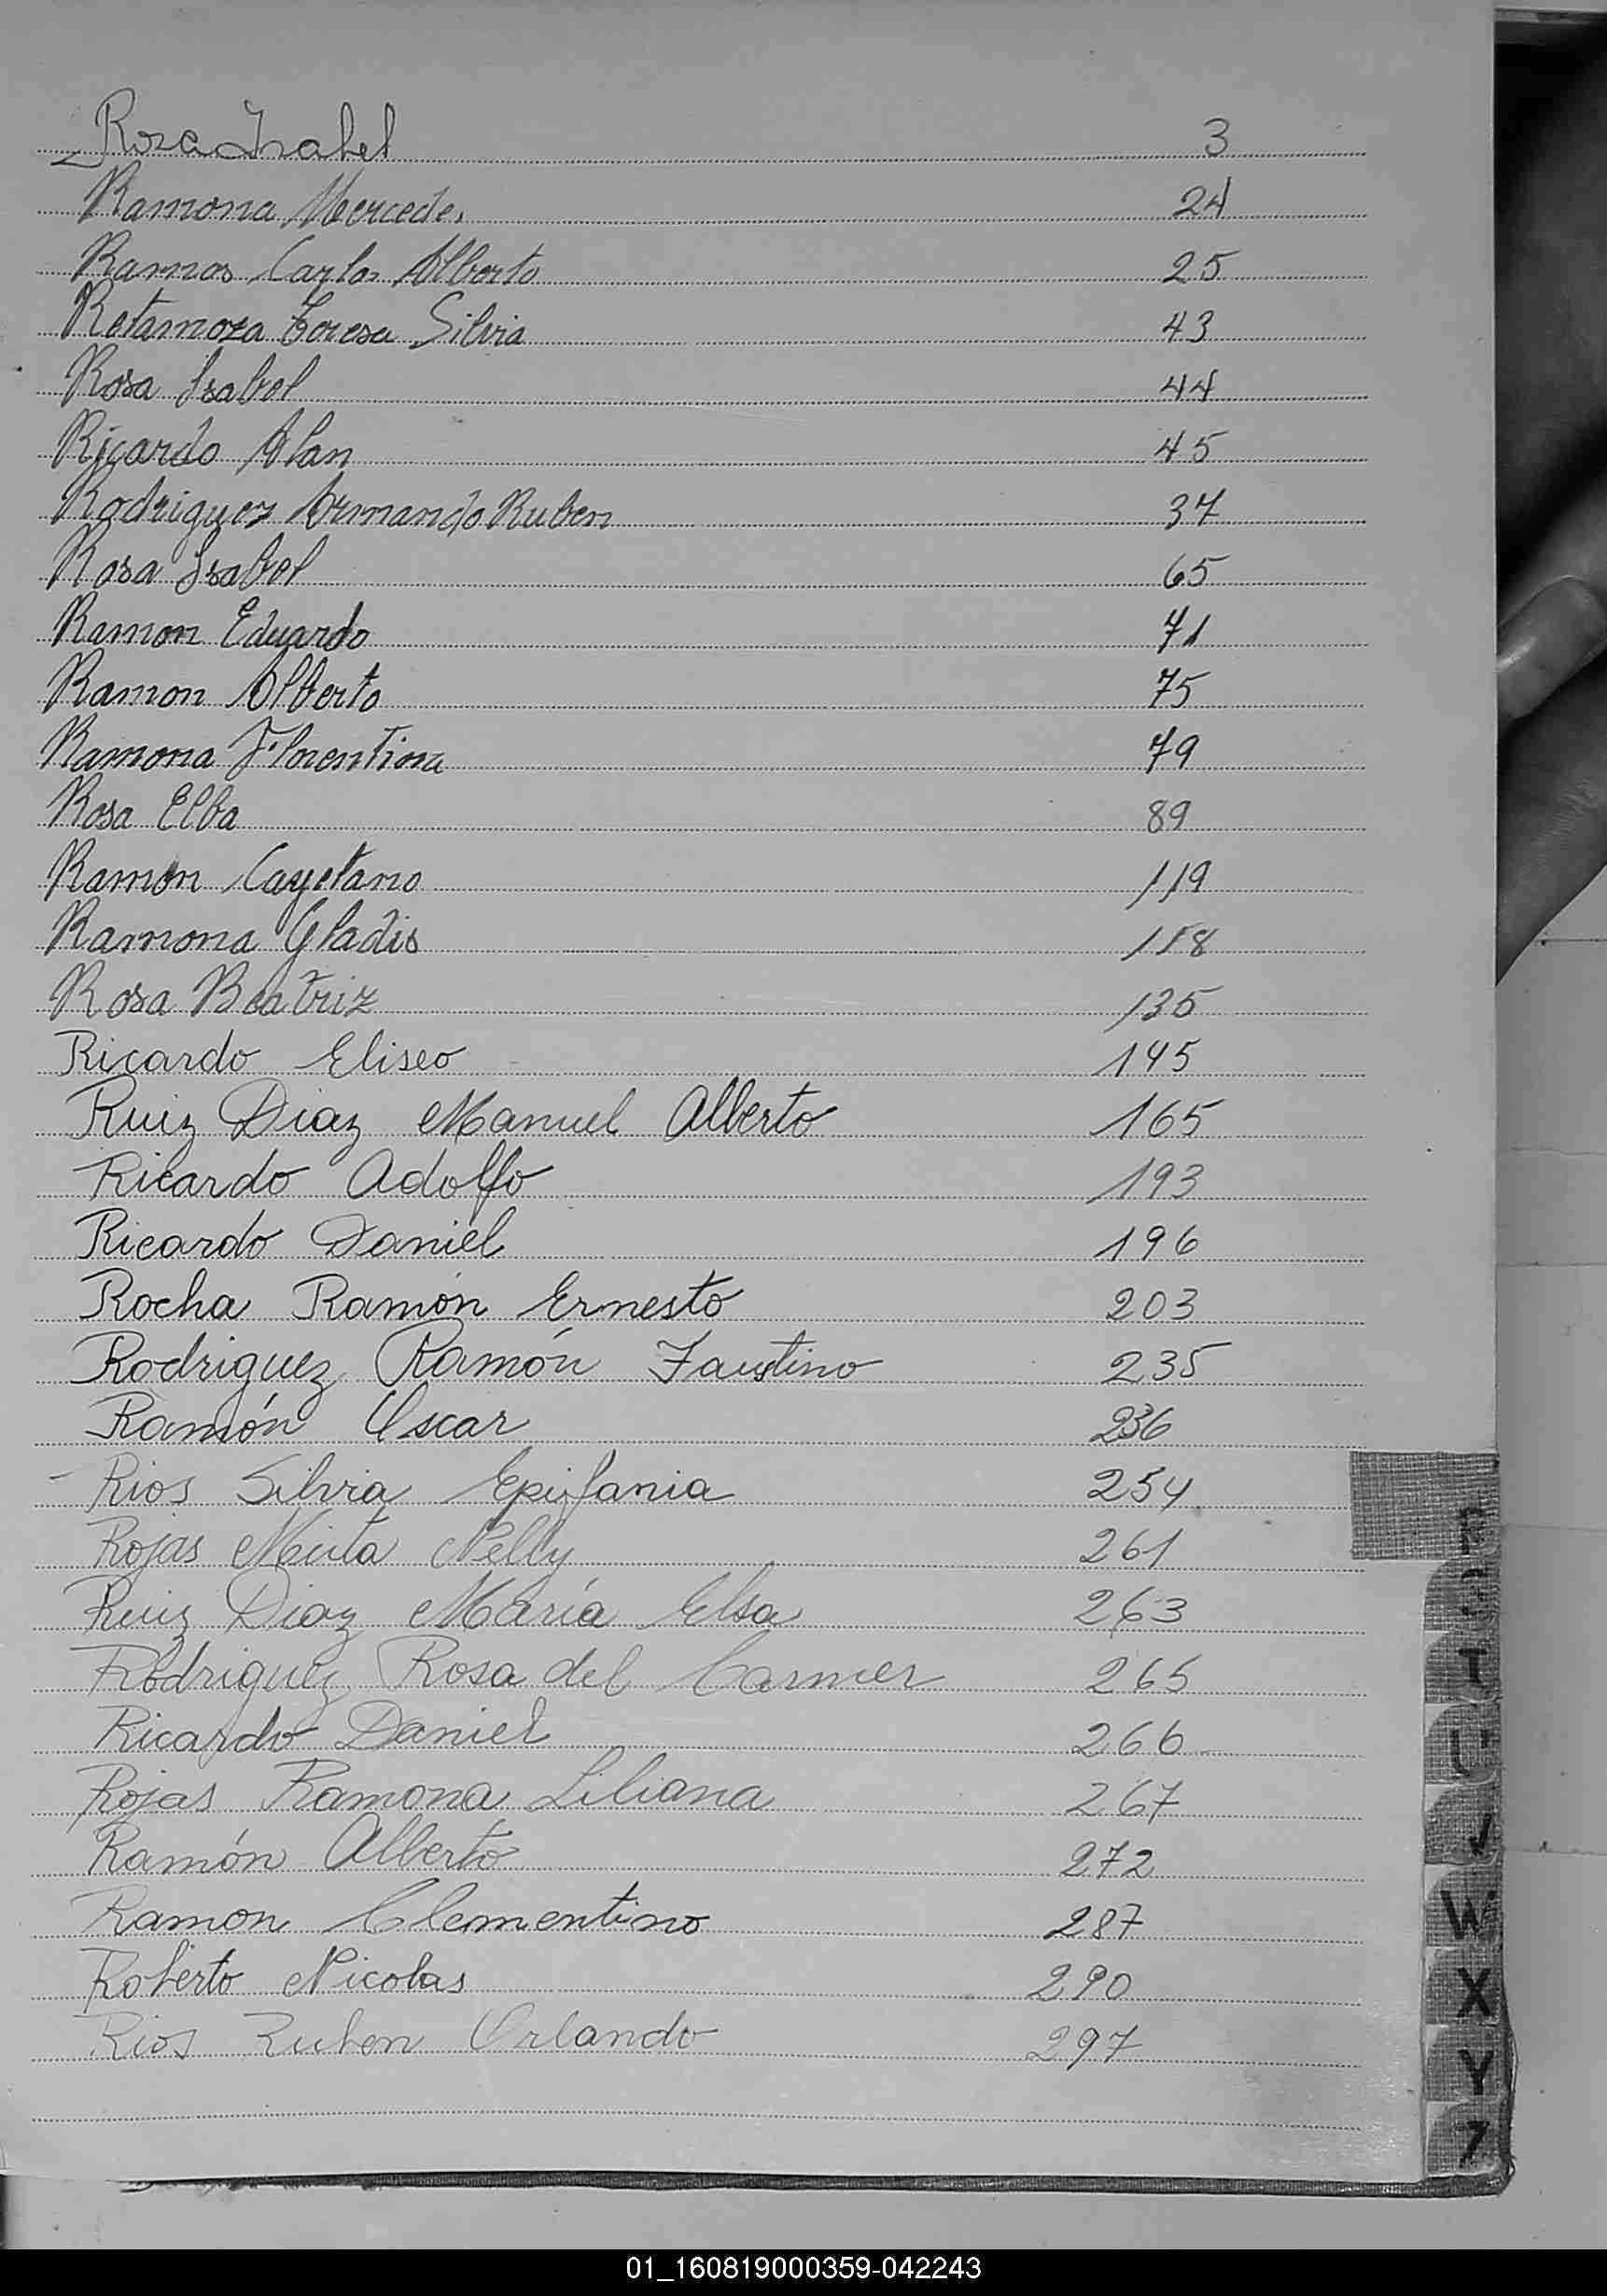 Rosa Isabel 3
Ramona Mercedes 24
Ramos Carlos Alberto 25
Retamoza Teresa Silvia 43
Rosa Isabel 44
Ricardo Alan 45
Rodriguez Armando Ruben 37
Rosa Isabel 65
Ramon Eduardo 71
Ramon Alberto 75
Ramona Florentina 79
Rosa Elba 89
Ramon Cayetano 119
Ramona Gladis 118
Rosa Beatriz 135
Ricardo Eliseo 145
Ruiz Diaz Manuel Alberto 165
Ricardo Adolfo 193
Ricardo Daniel 196
Rocha Ramón Ernesto 203
Rodriguez Ramón Faustino 235
Ramón Oscar 236
Rios Silvia Epifania 254
Rojas Mirta Nelly 261
Ruiz Diaz María Elsa 263
Rodriguez Rosa del Carmen 265
Ricardo Daniel 266
Rojas Ramona Liliana 267
Ramón Alberto 272
Ramon Clementino 287
Roberto Nicolas 290
Rios Ruben Orlando 297
R
T
U
V
W
X
Y
Z
01_160819000359-042243